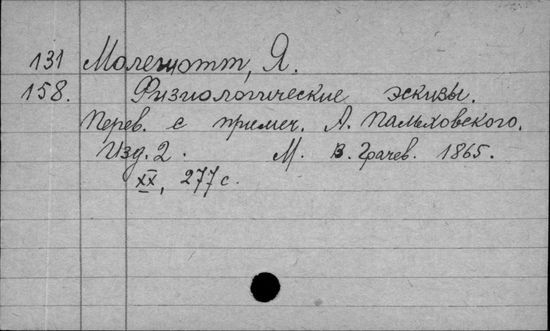 131 Молешотт, Я.
158. Физиологические эскизы.
Перев. с примеч. А. Пальховского.
Изд. 2. М. В. Грачев. 1865.
XX, 277 с.